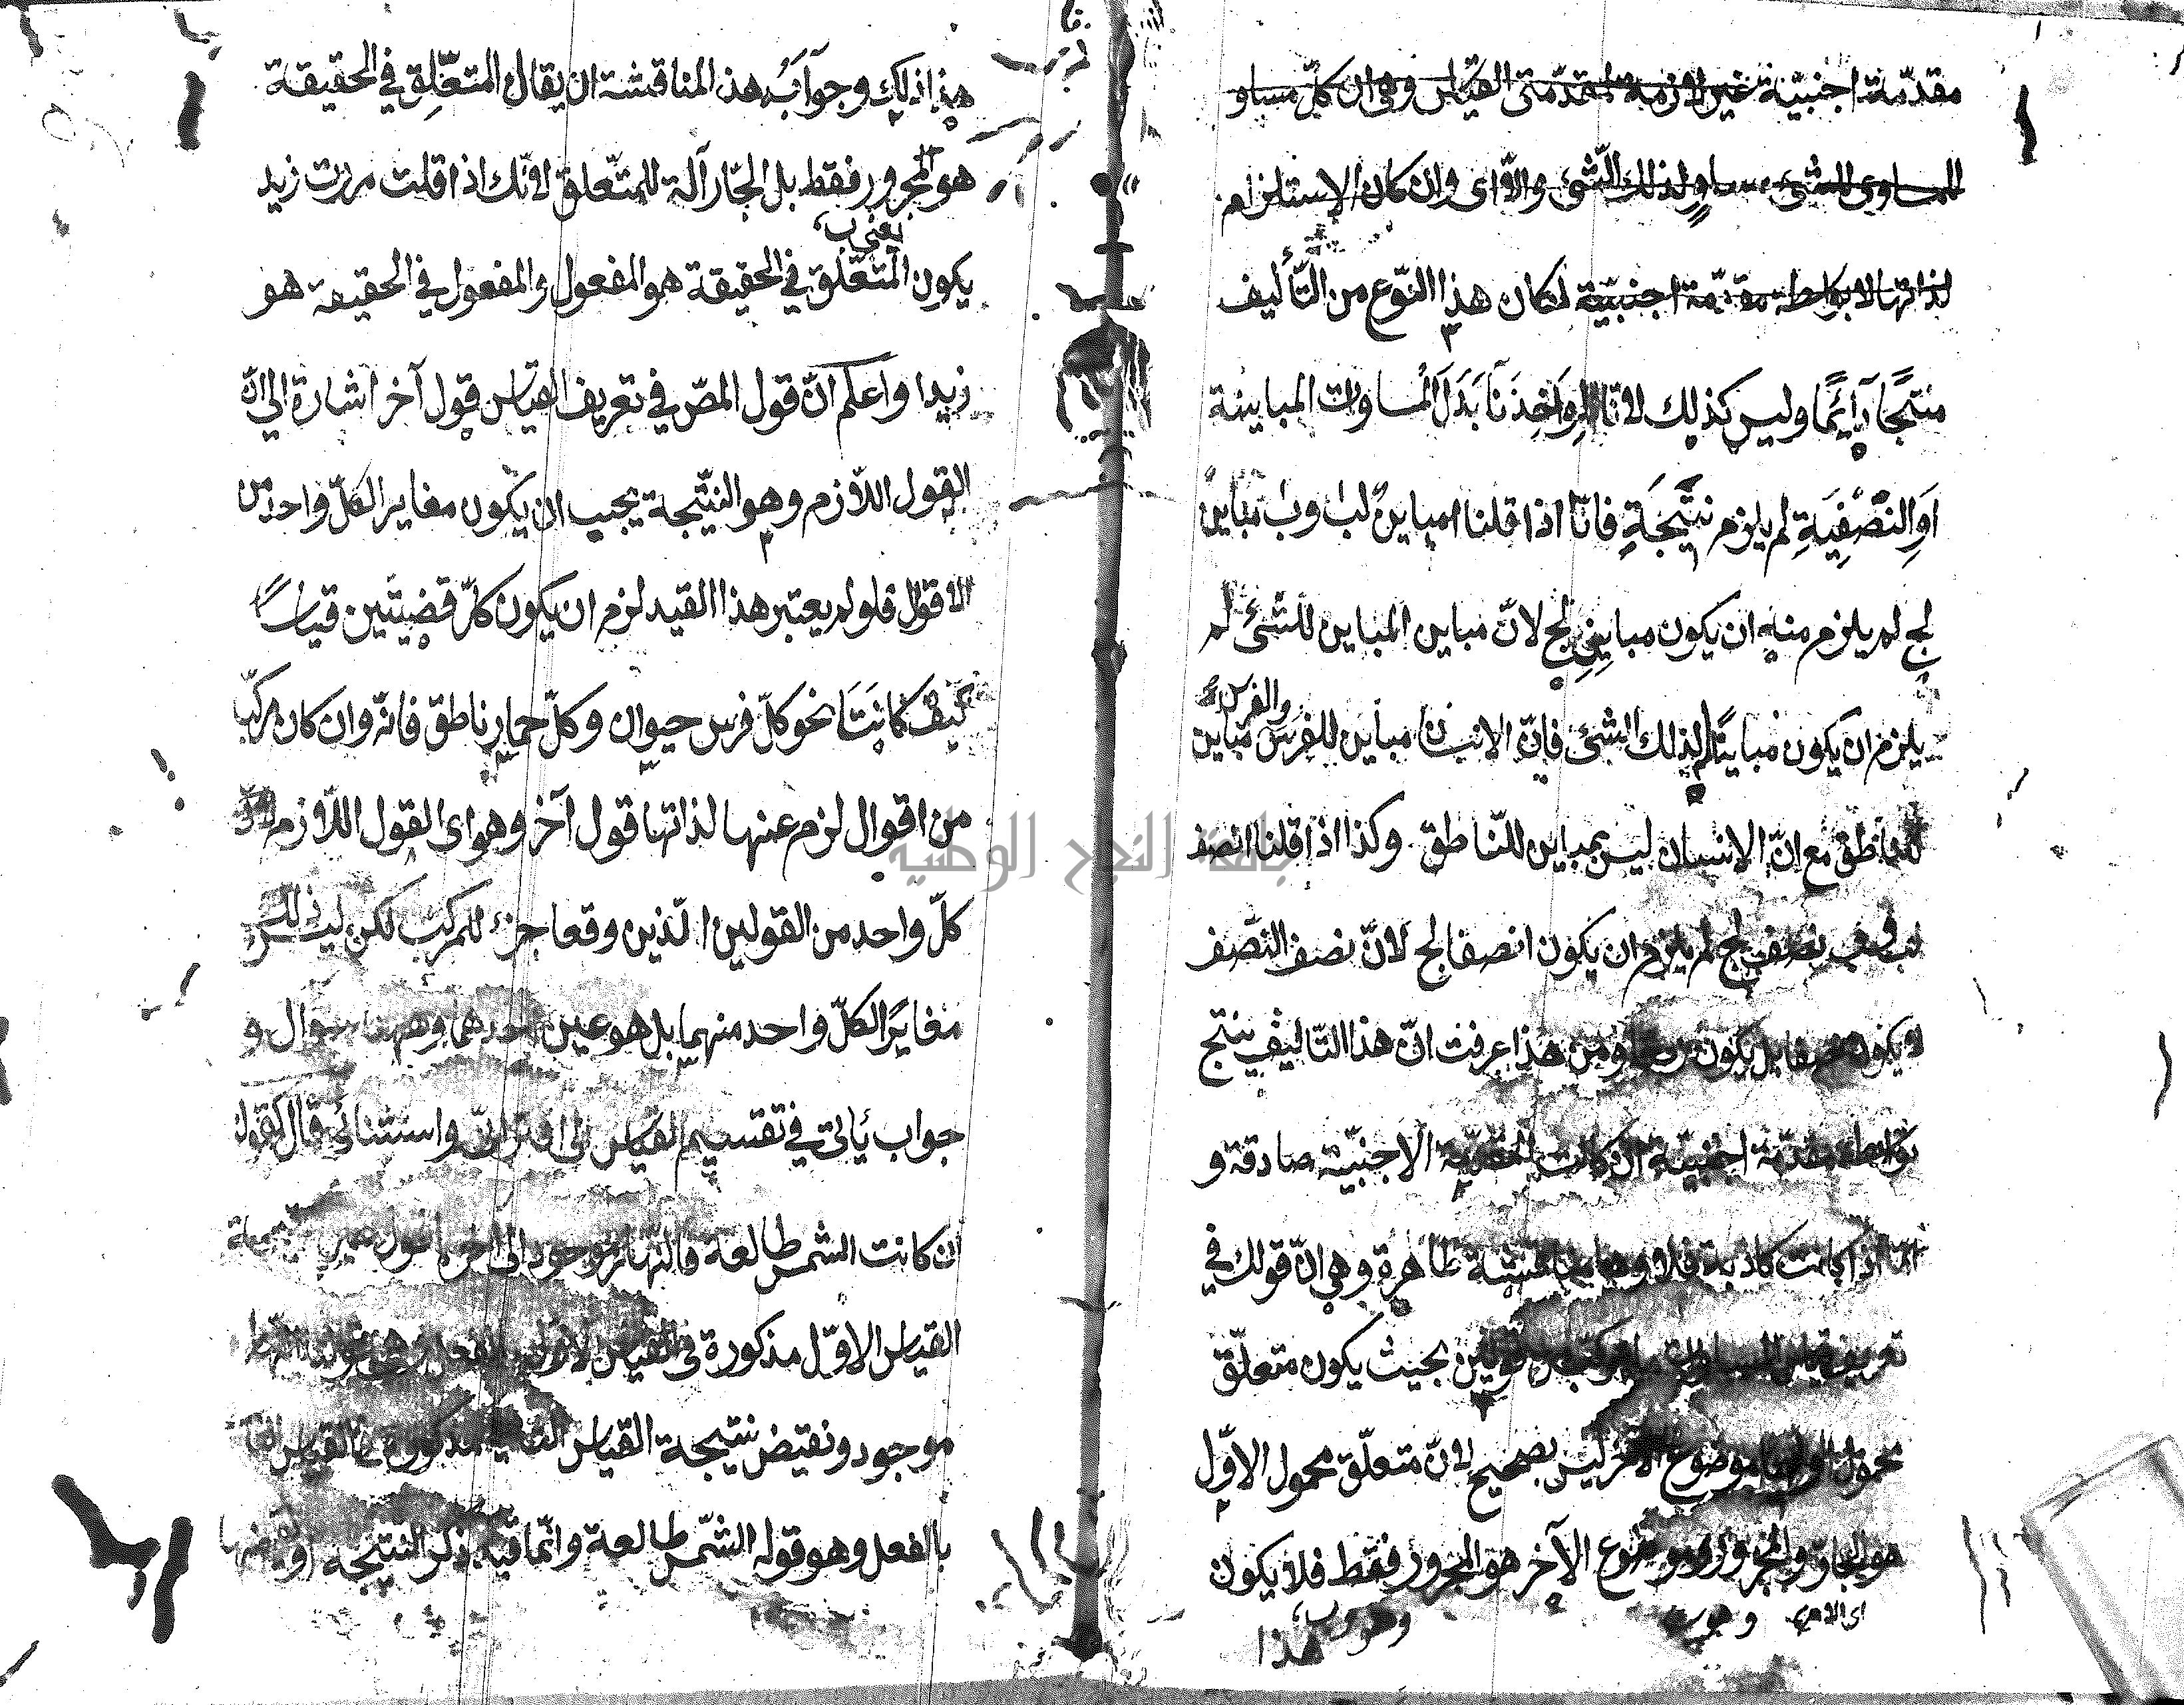 مقدّمة اجنبيّة غير لازمة لمقدّمتى القياس وهى ان كلّ مساو
للمساوى للشئ مساوٍ لذلك الشّئ والاّ اى وان كان الاستلزام
لذاتها لا بواسطة مقدّمة اجنبيّة لكان هذا النّوع من التّأليف
منتجًا دآئمًا وليس كذلك لانّا لو اخذنا بَدَلَ المساوات المباينة
اَوِالنّصْفِيَةِ لم يلزم نتيجَةٍ فانّا اذا قلنا ا مباينٌ لب وب مباينٌ
لج لم يلزم منه ان يكون مباينٍ لج لانّ مباين المباين للشئ لم
يلزم ان يكون مباينًا لذلك الشئ فانّ الانسان مباين للفرس والفرس مباين
للناطق مع انّ الانسان ليس بمباين للنّاطق وكذا اذا قلنا ا نصف
لب وب نصف لج لم يلزم ان يكون ا نصفا لج لانّ نصف النّصف
لا يكون نصفا بل يكون ومن هذا عرفت انّ هذا التّاليف ينتج
بواسطة مقدّمة اجنبيّة ان كانت المقدّمة الاجنبيّة صادقة و
امّا اذا كانت كاذبة فلا وههنا مناقشة ظاهرة وهى انّ قولك فى
تعريف قياس المساوات ما يركّب من قولين بحيث يكون متعلّق
محمول اولهما موضوع الآخر ليس بصحيح لانّ متعلّق محمول الاوّل
هو الجار والمجرور وموضوع الآخر هو المجرور فقط فلا يكون
وهو ب،
هذا
هذا ذلك وجوآبُ هذ المناقشة ان يقال المتعّلِق فى الحقيقة
هو المجرور فقط بل الجّار آلة للمتّعلق لانّك اذا قلت مررت زيد
يعنى ب،
يكون المتّعّلق فى الحقيقة هو المفعول والمفعول فى الحقيقة هو
زيدا واعلم انّ قول المصّ فى تعريف القياس قول آخر اشارة الى انّ
القول اللاّزم وهو النتّيجة يجب ان يكون مغاير الكلّ واحد من
الاقوال فلو لم يعتبر هذا القيد لزم ان يكون كلّ قضيتين قياسًا
كيف كانَتَا نحو كلّ فرس حيوان وكلّ حمار ناطق فانّه وان كان مركّبا
من اقوال لزم عنها لذاتها قول آخر وهو اى القول اللاّزم
كلّ واحد من القولين الّذين وقعا جزء للمركب لكن ليس ذلك
مغايرًا لكلّ واحد منهما بل هو عين احدهما وههنا سوال و
جواب يأتى فى تقسيم القياس الى اقترانىّ واستثنائى قال كقولنا
ان كانت الشمس طالعة فالنّهار موجود الى آخره اقول
القياس الاوّل مذكورة فى القياس الاوّل بالفعل وهى
موجود ونقيض نتيجة القياس الثانى مذكورة فى القياس
بالفعل وهو قوله الشّمس طالعة وانّما قيّد ذكر النتيجة
جامعة النجاح الوطنية